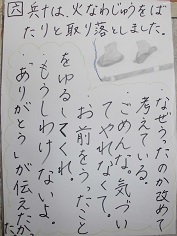 六 兵十は、火なわじゅうをば
たりと取り落としました。
なぜうったのか改めて
考えている。
・ごめんな。気づい
てやれなくて。
お前をうったこと
をゆるしてくれ。
・もうしわけないよ。
・ありがとう」が伝えたか